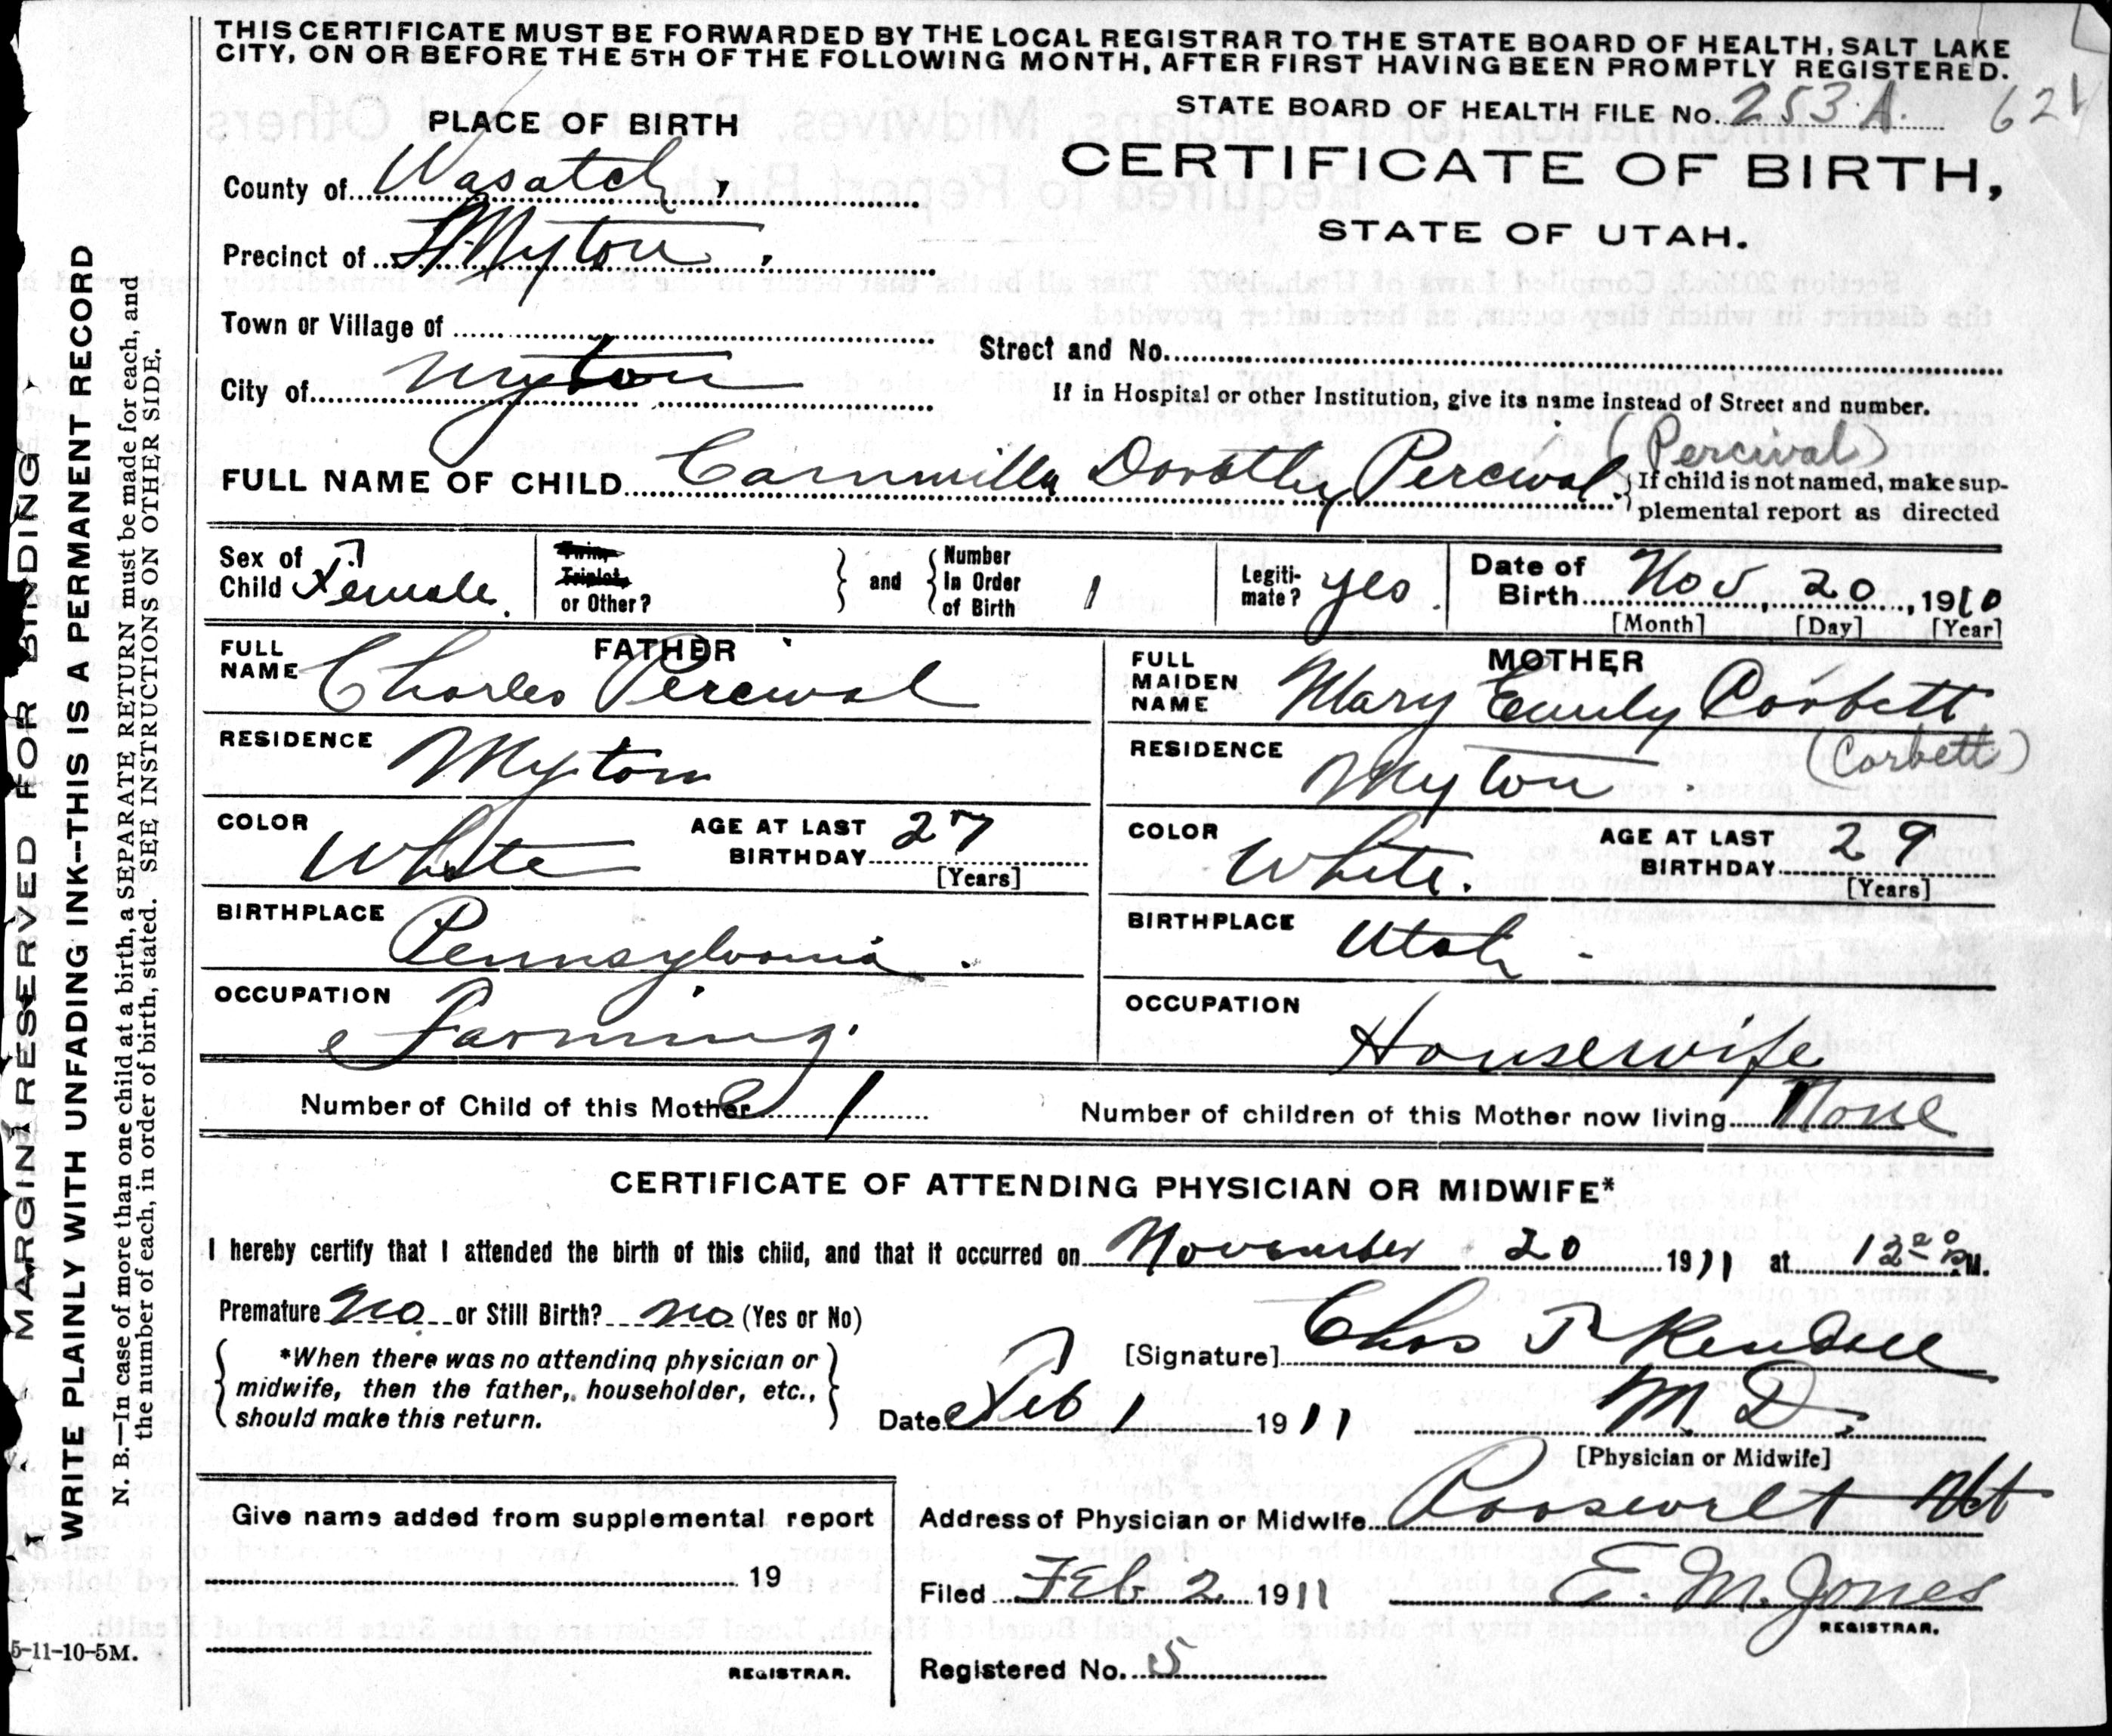 THIS CERTIFICATE MUST BE FORWARDED BY THE LOCAL REGISTRAR TO THE STATE BOARD OF HEALTH, SALT LAKE
CITY, ON OR BEFORE THE 5TH OF THE FOLLOWING MONTH, AFTER FIRST HAVING BEEN PROMPTLY REGISTERED.
STATE BOARD OF HEALTH FILE No. 253 A. 621
PLACE OF BIRTH
CERTIFICATE OF BIRTH,
STATE OF UTAH.
County of Wasatch,
Precinct of Myton.
Town or Village of
Street and No.
City of Myton
If in Hospital or other Institution, give its name Instead of Street and number.
(Percival)
FULL NAME OF CHILD Cammilla Dorothy Percival.
If child is not named, make sup-
plemental report as directed
Sex of Child Female.
Twin, Triplet, or Other?
and
Number In Order of Birth 1
Legiti-mate? yes.
Date of Birth Nov, 20, 1910
[Month] [Day] [Year]
FATHER
FULL NAME Charles Percival
RESIDENCE Myton
COLOR White
AGE AT LAST BIRTHDAY 27
[Years]
BIRTHPLACE Pennsylvania.
OCCUPATION Farming.
MOTHER
FULL MAIDEN NAME Mary Emily Corbett
(Corbett)
RESIDENCE Myton.
COLOR White.
AGE AT LAST BIRTHDAY 29
[Years]
BIRTHPLACE Utah.
OCCUPATION Housewife
Number of Child of this Mother 1
Number of children of this Mother now living None
CERTIFICATE OF ATTENDING PHYSICIAN OR MIDWIFE*
I hereby certify that I attended the birth of this child, and that it occurred on November 20 1911 at 12 20 P M.
Premature no or Still Birth? no (Yes or No)
*When there was no attending physician or
midwife, then the father, householder, etc.,
should make this return.
[Signature] Chas J Kendall
M. D.
[Physician or Midwife]
Date Feb 1 1911
Give name added from supplemental report
19
REGISTRAR.
Address of Physician or Midwife Roosevelt Ut
Filed Feb 2 1911
E. M. Jones
REGISTRAR.
Registered No. 5
5-11-10-5M.
MARGIN RESERVED FOR BINDING
WRITE PLAINLY WITH UNFADING INK--THIS IS A PERMANENT RECORD
N. B.—In case of more than one child at a birth, a SEPARATE RETURN must be made for each, and
the number of each, in order of birth, stated. SEE INSTRUCTIONS ON OTHER SIDE.